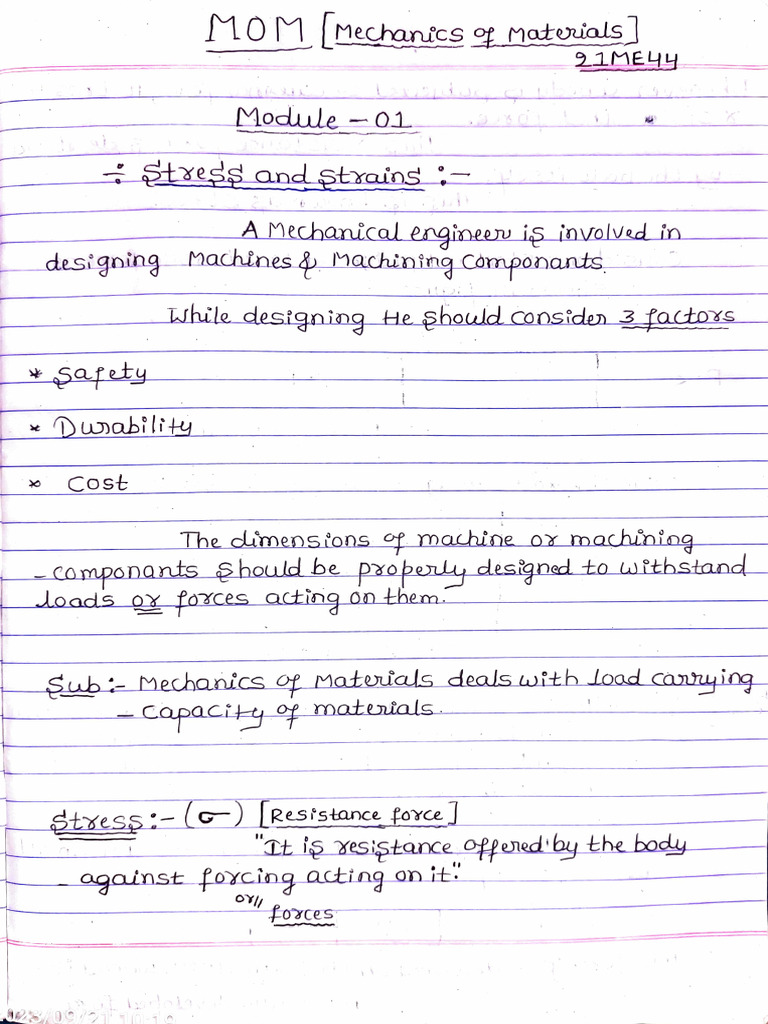 MOM [Mechanics of Materials]
21ME44
Module - 01
÷ Stress and Strains :-
A Mechanical engineer is involved in
designing Machines & Machining Componants.
While designing He should consider 3 factors
* Safety
* Durability
* Cost
The dimensions of machine or machining
- componants should be properly designed to withstand
loads or forces acting on them.
Sub :- Mechanics of Materials deals with load carrying
- capacity of materials.
Stress :- (σ) [Resistance force]
"It is resistance offered by the body
- against forcing acting on it."
or//
forces